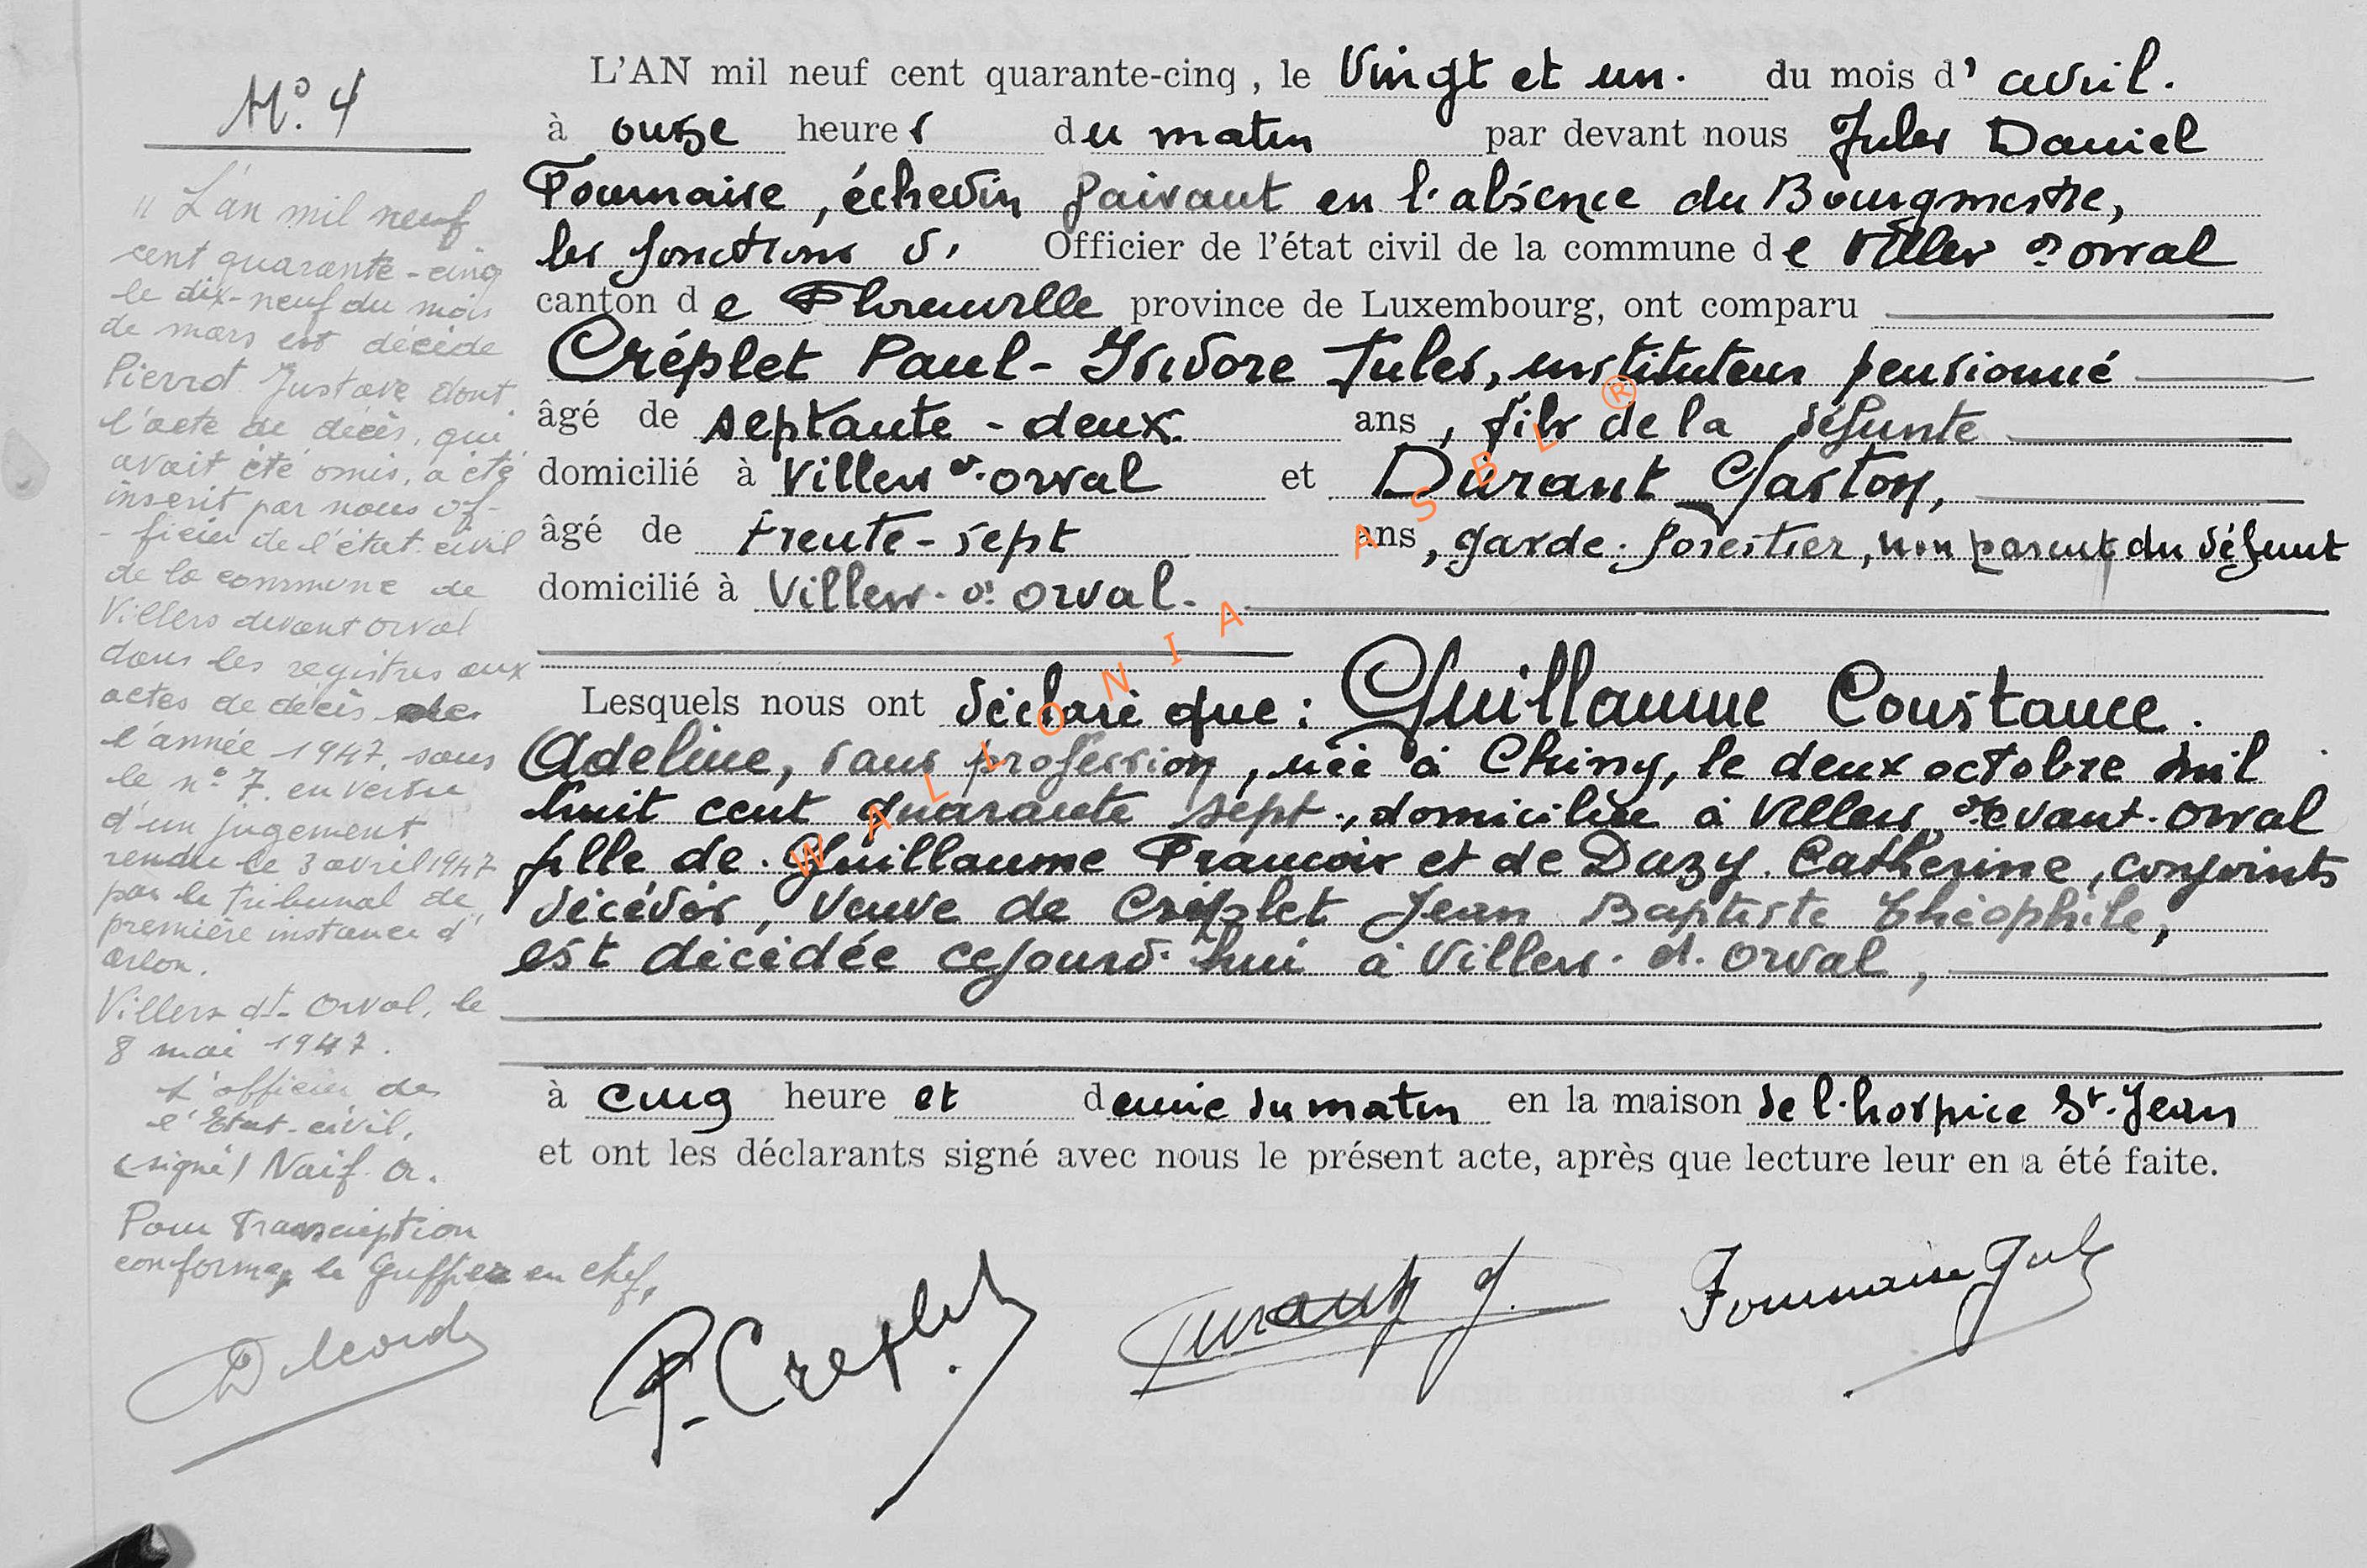 N° 4
"L'an mil neuf
cent quarante-cinq
le dix-neuf du mois
de mars est décédé
Pierrot Gustave dont
l'acte de décès, qui
avait été omis, a été
inscrit par nous of-
-ficier de l'état civil
de la commune de
Villers devant Orval
dans les registres aux
actes de décès de
l'année 1947, sous
le n° 7. en vertu
d'un jugement
rendu le 3 avril 1947
par le tribunal de
première instance d'
Arlon.
Villers dt Orval, le
8 mai 1947.
L'officier de
l'Etat-civil,
(signé) Naif. A.
Pour Transcription
conforme, le Greffier en chef,
L'AN mil neuf cent quarante-cinq, le Vingt et un. du mois d'avril.
à onze heures du matin par devant nous Jules Daniel
Fournaise, échevin faisant en l'absence du Bourgmestre,
les fonctions d' Officier de l'état civil de la commune de Villers d' orval
canton de Florenville province de Luxembourg, ont comparu
Créplet Paul-Isidore Jules, instituteur pensionné
âgé de septante-deux ans, fils de la défunte
domicilié à Villers d. orval et Durant Gaston,
âgé de trente-sept ans, garde-forestier, non parent du défunt
domicilié à Villers. d. orval.
Lesquels nous ont déclaré que: Guillaume Constance.
Adeline, sans profession, née à Chiny, le deux octobre mil
huit cent quarante sept, domiciliée à Villers devant-orval
fille de Guillaume François et de Dazy Catherine, conjoints
décédés, veuve de Créplet Jean Baptiste Théophile,
est décédée cejourd'hui à Villers. d. Orval,
à cinq heure et demie du matin en la maison de l'hospice St. Jean
et ont les déclarants signé avec nous le présent acte, après que lecture leur en a été faite.
P. Creplet
Durant G.
Fournaise Jul
WALLONIA ASBL ®